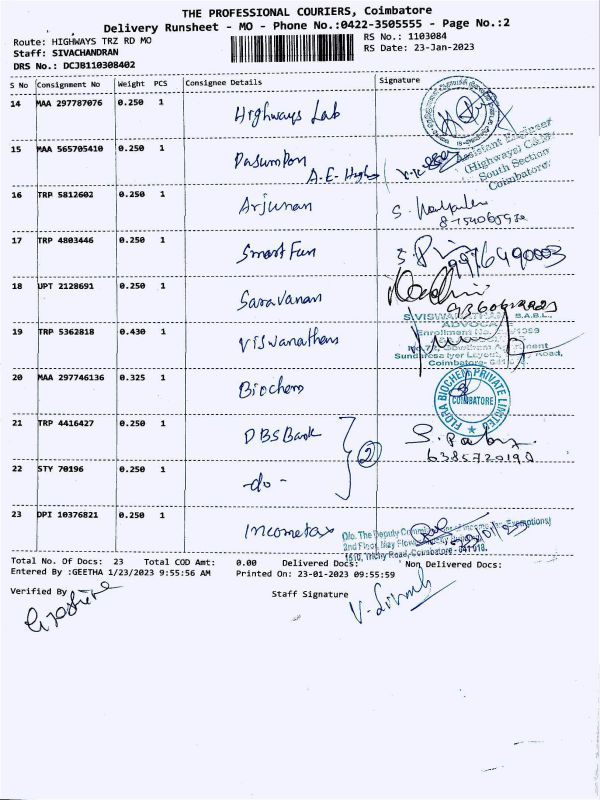 THE PROFESSIONAL COURIERS, Coimbatore
Delivery Runsheet - MO - Phone No.:0422-3505555 - Page No.:2
Route: HIGHWAYS TRZ RD MO
RS No.: 1103084
Staff: SIVACHANDRAN
RS Date: 23-Jan-2023
DRS No.: DCJB110308402
S No Consignment No Weight PCS Consignee Details Signature
14 MAA 297787076 0.250 1 Highways Lab
15 MAA 565705410 0.250 1 Pasumpon
A.E-Highs
Assistant Engineer
(Highways) C&M
South Section
Coimbatore
16 TRP 5812602 0.250 1 Arjunan
17 TRP 4803446 0.250 1 Smart Fun
18 UPT 2128691 0.250 1 Saravanan
19 TRP 5362818 0.430 1 Viswanathan
B.A.B.L.,
ADVOCATE
Coimbatore-
20 MAA 297746136 0.325 1 Biochem
FLORA BIOCHEM PRIVATE LIMITED
COIMBATORE
21 TRP 4416427 0.250 1 DBS Bank
2
22 STY 70196 0.250 1 -do-
23 DPI 10376821 0.250 1 Incometax
O/o. The Deputy
2nd Floor, May Flow
1510, Trichy Road, Coimbatore - 641 018.
Total No. Of Docs: 23 Total COD Amt: 0.00 Delivered Docs: Non Delivered Docs:
Entered By :GEETHA 1/23/2023 9:55:56 AM Printed On: 23-01-2023 09:55:59
Verified By
Staff Signature